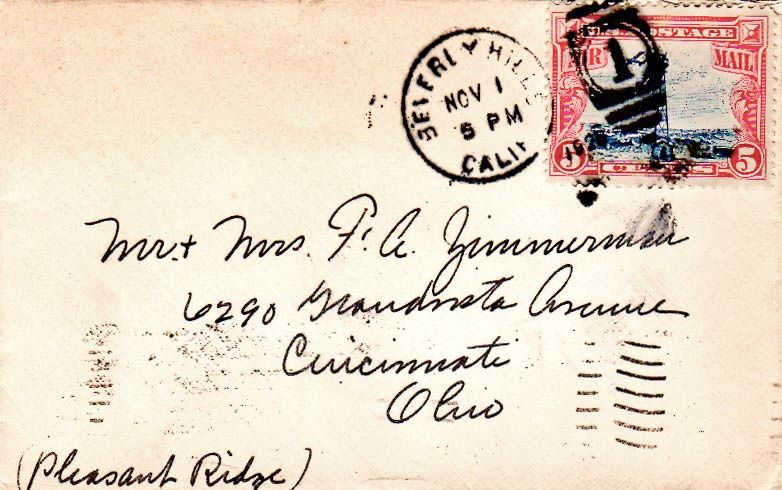 BEVERLY HILLS
NOV 1
5 PM
CALIF
U.S. POSTAGE
AIR MAIL
1
5 5
CENTS
Mr. + Mrs. F. A. Zimmerman
6290 Grandvista Avenue
Cincinnati
Ohio
(Pleasant Ridge)